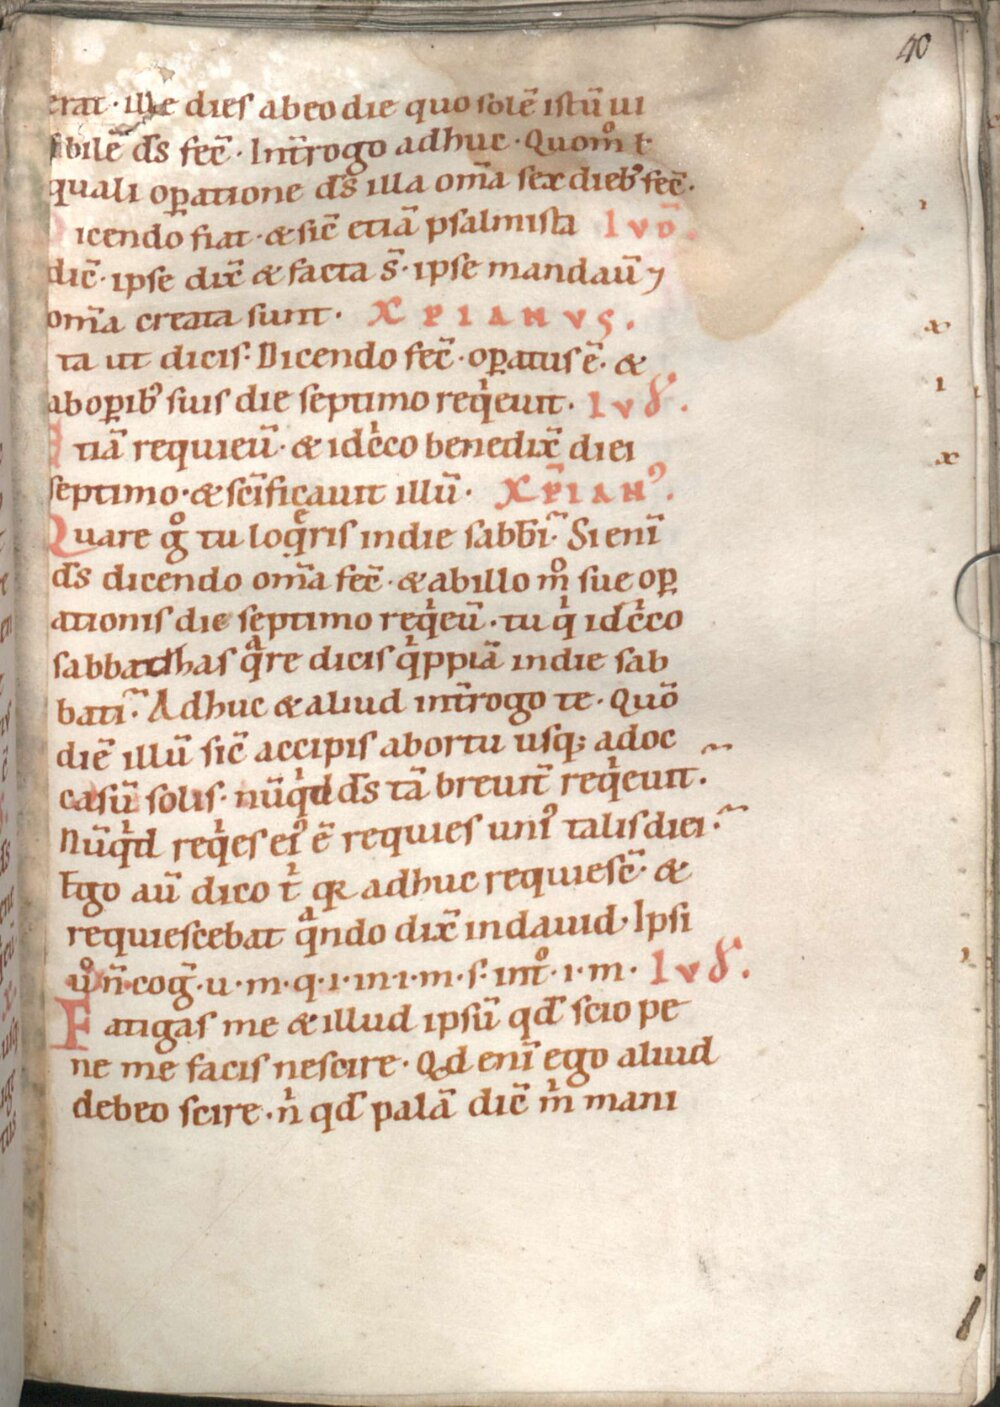 40
erat · ille dies ab eo die quo solē istū ui
sibilē d̄s fec̄ · Int̄rogo adhuc · Quom̊ t
quali oꝑatione d̄s illa om̄a sex dieb᾽ fec̄ ·
Dicendo fiat · & sic̄ etiā psalmista lvd̄ .
dic̄ · ipse dix̄ & facta s̄ · ipse mandau̅ ⁊
om̄a creata sunt · XPIANVS .
ta ut dicis : Dicendo fec̄ · oꝑatus ē · &
ab oꝑib᾽ suis die septimo req̍euit · lvd᾽ .
Etiā requieu̅ · & idc̍co benedix̄ diei
septimo · & sc̄ificauit illū · XP̄IAN᾽ .
Quare g̊ tu loq̄ris in die sabb̄i · Si enī
d̄s dicendo om̄a fec̄ · & ab illo m̊ sue oꝑ
ationis die septimo req̍eu̅ · tu q̍ idc̍co
sabbathas qᵃre dicis q̍ppiā in die sab
bati · Adhuc & aliud int̄rogo te · Quō
diē illū sic̄ accipis ab ortu usq; ad oc
casū solis · nūq̍d d̄s tā breuit̄ req̍euit .
Nūq̍d req̍es ei᾽ ē requies uni᾽ talis diei ·
Ego au̅ dico t̍ qꝛ adhuc requiesc̄ · &
requiescebat qᵃndo dix̄ in dauid · Ipsi
ů n̄ cog̅ · u · m · q · i · in · i · m · s · int̊ · i · m · lvd᾽ .
Fatigas me & illud ipsū qd̄ scio pe
ne me facis nescire · Qd enī ego aliud
debeo scire · n̍ qd̄ palā dic̄ m̍ mani